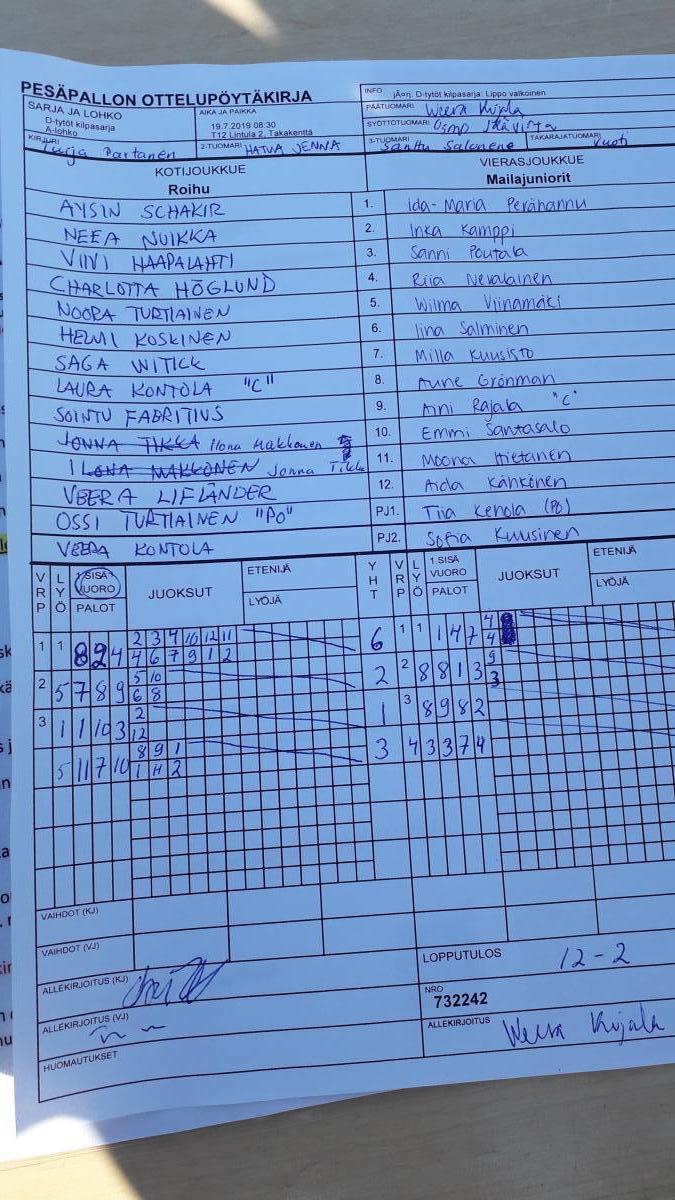 PESÄPALLON OTTELUPÖYTÄKIRJA
SARJA JA LOHKO
D-tytöt kilpasarja
A-lohko
AIKA JA PAIKKA
19.7.2019 08:30
T12 Lintula 2, Takakenttä
INFO jAorj. D-tytöt kilpasarja: Lippo valkoinen
PÄÄTUOMARI Weera Kijala
SYÖTTÖTUOMARI Osmo Itävirta
KIRJURI Tarja Partanen
2-TUOMARI HATVA JENNA
3-TUOMARI Santtu Salonene
TAKARAJATUOMARI Vuoti
KOTIJOUKKUE
Roihu
VIERASJOUKKUE
Mailajuniorit
AYSIN SCHAKIR 1. Ida-Maria Perähannu
NEEA NUIKKA 2. Inka Kamppi
VIIVI HAAPALAHTI 3. Sanni Poutala
CHARLOTTA HÖGLUND 4. Riia Nevalainen
NOORA TURTIAINEN 5. Wilma Viinamäki
HELMI KOSKINEN 6. Iina Salminen
SAGA WITICK 7. Milla Kuusisto
LAURA KONTOLA "C" 8. Aune Grönman
SOINTU FABRITIUS 9. Aini Rajala "C"
JONNA TIKKA Ilona Makkonen 10. Emmi Santasalo
ILONA MAKKONEN Jonna Tikka 11. Moona Hietanen
VEERA LIFLÄNDER 12. Aida Känkönen
OSSI TURTIAINEN "PO" PJ1. Tiia Kehola (PO)
VEERA KONTOLA PJ2. Sofia Kuusinen
VRP LYÖ 1 SISÄVUORO PALOT JUOKSUT ETENIJÄ LYÖJÄ YHT VRP LYÖ 1 SISÄ VUORO PALOT JUOKSUT ETENIJÄ LYÖJÄ
2 3 4 10 12 11 4
1 1 8 2 4 4 6 7 9 1 2 6 1 1 1 4 7 4
5 10 9
2 5 7 8 9 6 8 2 2 8 8 1 3 3
2
3 1 1 10 3 12 1 3 8 9 8 2
8 9 1
5 11 7 10 1 H 2 3 4 3 3 7 4
VAIHDOT (KJ)
VAIHDOT (VJ)
ALLEKIRJOITUS (KJ)
LOPPUTULOS 12-2
ALLEKIRJOITUS (VJ)
NRO
732242
HUOMAUTUKSET
ALLEKIRJOITUS Weera Kijala